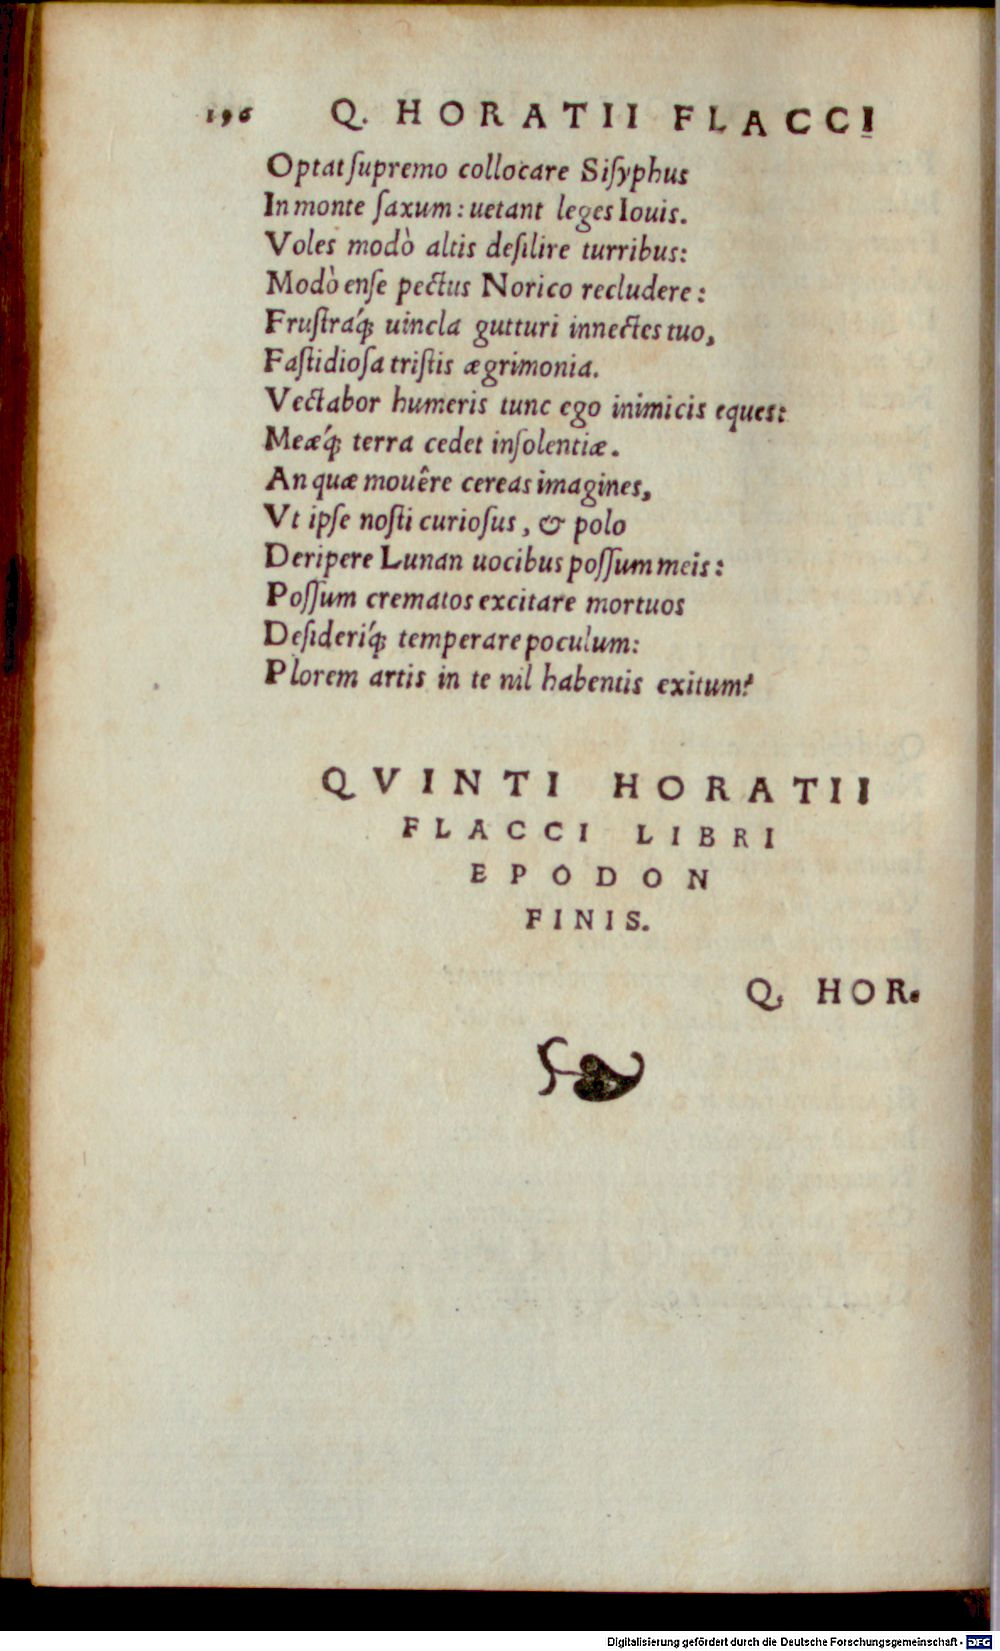 196 Q. HORATII FLACCI
Optat ſupremo collocare Siſyphus
In monte ſaxum: uetant leges Iouis.
Voles modò altis deſilire turribus:
Modò enſe pectus Norico recludere:
Fruſtraq́; uincla gutturi innectes tuo,
Faſtidioſa triſtis ægrimonia.
Vectabor humeris tunc ego inimicis eques:
Meæq́; terra cedet inſolentiæ.
An quæ mouêre cereas imagines,
Vt ipſe noſti curioſus, & polo
Deripere Lunan uocibus poſſum meis:
Poſſum crematos excitare mortuos
Deſideriq́; temperare poculum:
Plorem artis in te nil habentis exitum?
QVINTI HORATII
FLACCI LIBRI
EPODON
FINIS.
Q. HOR.
Digitalisierung gefördert durch die Deutsche Forschungsgemeinschaft - DFG